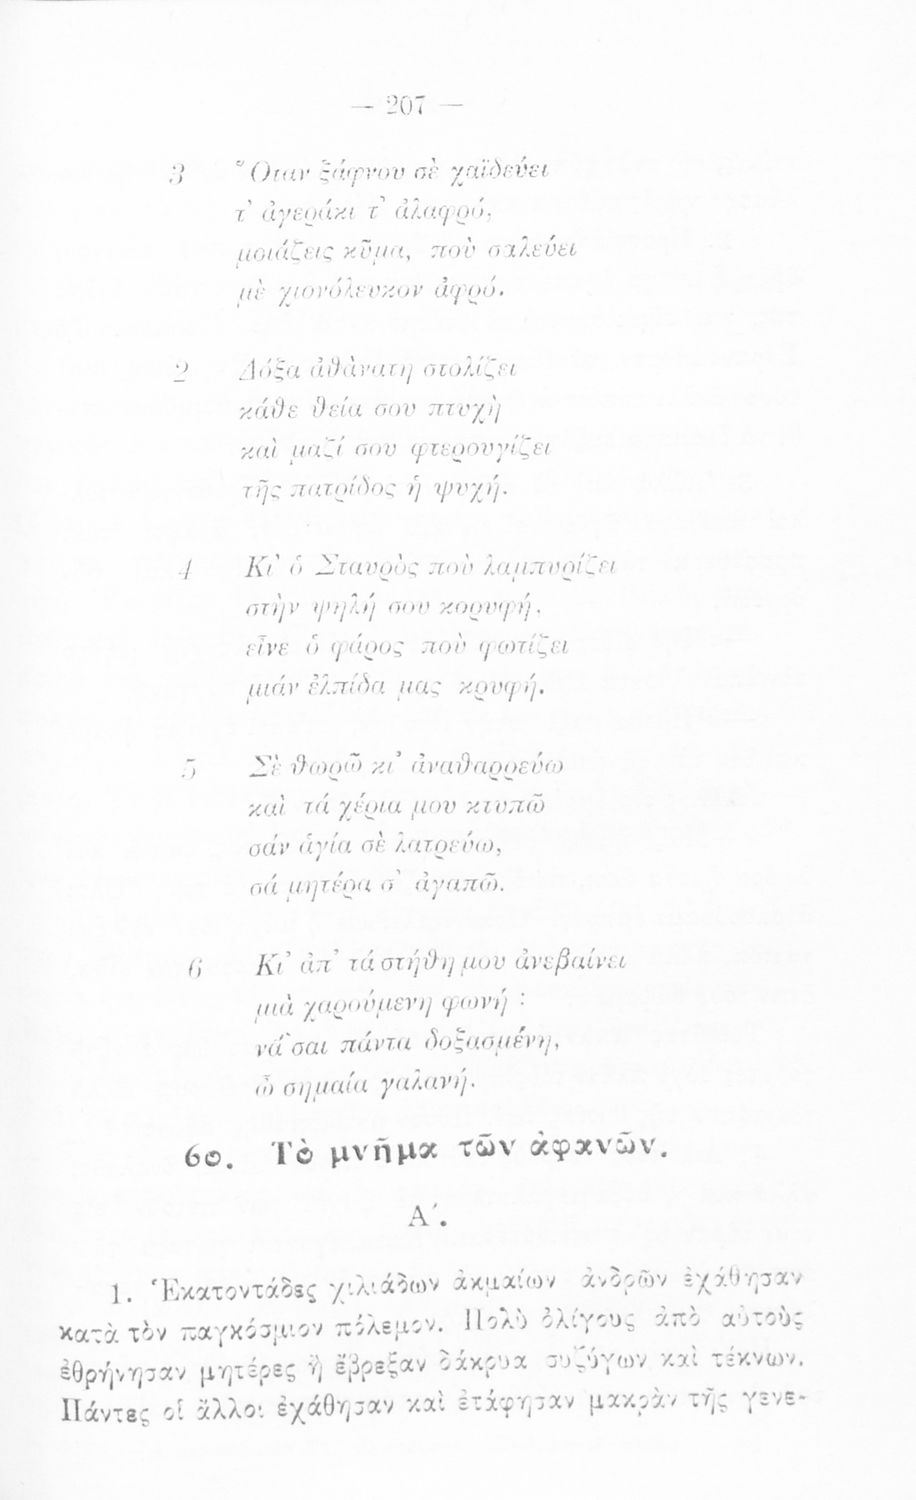 — 207 —
3 Ὅταν ξάφνου σὲ χαϊδεύει
τ' ἀγεράκι τ' ἀλαφρό,
μοιάζεις κῦμα, ποὺ σαλεύει
μὲ χιονόλευκον ἀφρό.
2 Δόξα ἀθὰνατη στολίζει
κάθε θεία σου πτυχὴ
καὶ μαζί σου φτερουγίζει
τῆς πατρίδος ἡ ψυχή.
4 Κι' ὁ Σταυρὸς ποὺ λαμπυρίζει
στὴν ψηλή σου κορυφή,
εἶνε ὁ φάρος ποὺ φωτίζει
μιάν ἐλπίδα μας κρυφή.
5 Σὲ θωρῶ κι' ἀναθαρρεύω
καὶ τά χέρια μου κτυπῶ
σάν ἁγία σὲ λατρεύω,
σά μητέρα σ' ἀγαπῶ.
6 Κι' ἀπ' τά στήθη μου ἀνεβαίνει
μιὰ χαρούμενη φωνή :
νά 'σαι πάντα δοξασμένη,
ὦ σημαία γαλανή.
60. Τὸ μνῆμα τῶν ἀφανῶν.
Α΄.
1. Ἑκατοντάδες χιλιάδων ἀκμαίων ἀνδρῶν ἐχάθησαν
κατὰ τὸν παγκόσμιον πόλεμον. Πολὺ ὀλίγους ἀπὸ αὐτοὺς
ἐθρήνησαν μητέρες ἢ ἔβρεξαν δάκρυα συζύγων καὶ τέκνων.
Πάντες οἱ ἄλλοι ἐχάθησαν καὶ ἐτάφησαν μακρὰν τῆς γενε-